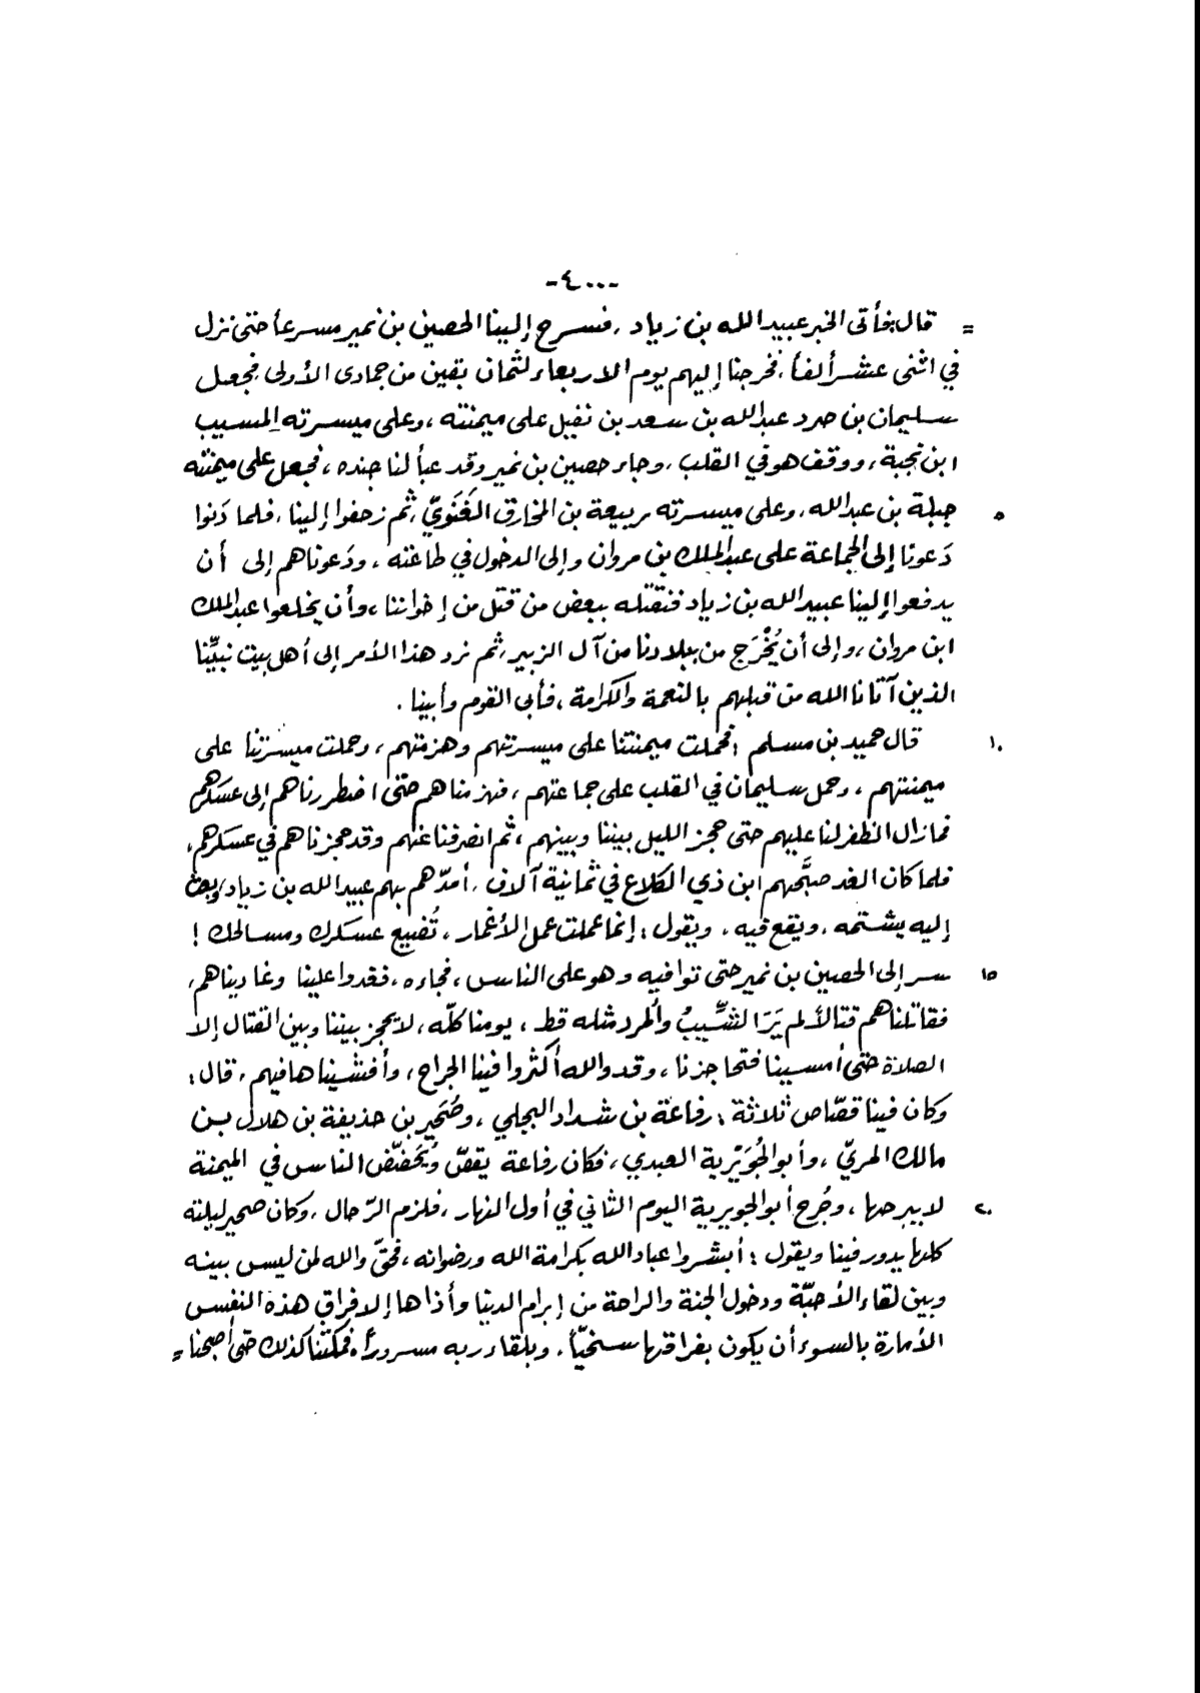 -٤٠٠-
= قال: فأتى الخبر عبيد الله بن زياد، فسرح إلينا الحصين بن نمير مسرعاً حتى نزل
في اثنى عشر ألفاً، فخرجنا إليهم يوم الاربعاء لثمان بقين من جمادى الأولى، فجعل
سليمان بن صرد عبد الله بن سعد بن نفيل على ميمنته، وعلى ميسرته المسيب
ابن نجبة، ووقف هو في القلب، وجاء حصين بن نمير وقد عبأ لنا جنده، فجعل على ميمنته
٥ جبلة بن عبد الله، وعلى ميسرته ربيعة بن المخارق الغَنَويّ، ثم زحفوا إلينا، فلما دَنوا
دَعونا إلى الجماعة على عبد الملك بن مروان وإلى الدخول في طاعته، ودَعوناهم إلى أن
يدفعوا إلينا عبيد الله بن زياد فنقتله ببعض من قتل من إخواننا، وأن يخلعوا عبد الملك
ابن مروان، وإلى أن يُخْرَج من ببلادنا من آل الزبير، ثم نرد هذا الأمر إلى أهل بيت نبيِّنا
الذين آتانا الله من قبلهم بالنعمة والكرامة، فأبى القوم وأبينا.
١٠ قال حميد بن مسلم: فحملت ميمنتنا على ميسرتهم وهزمتهم، وحملت ميسرتنا على
ميمنتهم، وحمل سليمان في القلب على جماعتهم، فهزمناهم حتى اضطررناهم إلى عسكرهم
فما زال الظفر لنا عليهم حتى حجز الليل بيننا وبينهم، ثم انصرفنا عنهم وقد حجزناهم في عسكرهم،
فلما كان الغد صبَّحهم ابن ذي الكلاع في ثمانية آلاف، أمدّهم بهم عبيد الله بن زياد، وبعث
إليه يشتمه، ويقع فيه، ويقول: إنما عملت عمل الأغمار، تُضيع عسكرك ومسالحك!
١٥ سر إلى الحصين بن نمير حتى توافيه وهو على الناس، فجاءه، فغدوا علينا وغاديناهم،
فقاتلناهم قتالاً لم يَرَ الشِّيبُ والمرد مثله قط، يومنا كلّه، لا يحجز بيننا وبين القتال إلا
الصلاة حتى أمسينا فتحاجزنا، وقد والله أكثروا فينا الجراح، وأفشيناها فيهم، قال:
وكان فينا قصّاص ثلاثة: رفاعة بن شداد البجلي، وصُحَير بن حذيفة بن هلال بن
مالك المريّ، وأبو الجُوَيْرية العبدي، فكان رفاعة يقصّ ويُحَضّض الناس في الميمنة
٢٠ لا يبرحها، وجُرح أبو الجويرية اليوم الثاني في أول النهار، فلزم الرّحال، وكان صحير ليلته
كلها يدور فينا ويقول: أبشروا عباد الله بكرامة الله ورضوانه، فحقّ والله لمن ليس بينه
وبين لقاء الأحبّة ودخول الجنة والراحة من إبرام الدنيا وأذاها إلا فراق هذه النفس
الأمارة بالسوء أن يكون بفراقها سخيّاً، وبلقاء ربه مسروراً، فمكثنا كذلك حتى أصبحنا =